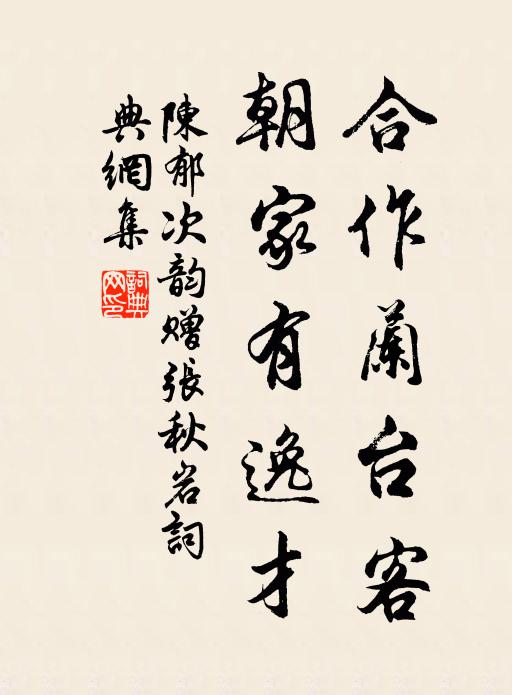 合作蘭台客
朝家有逸才
陳郁次韵贈張秋岩詞
典網集
詞典網印